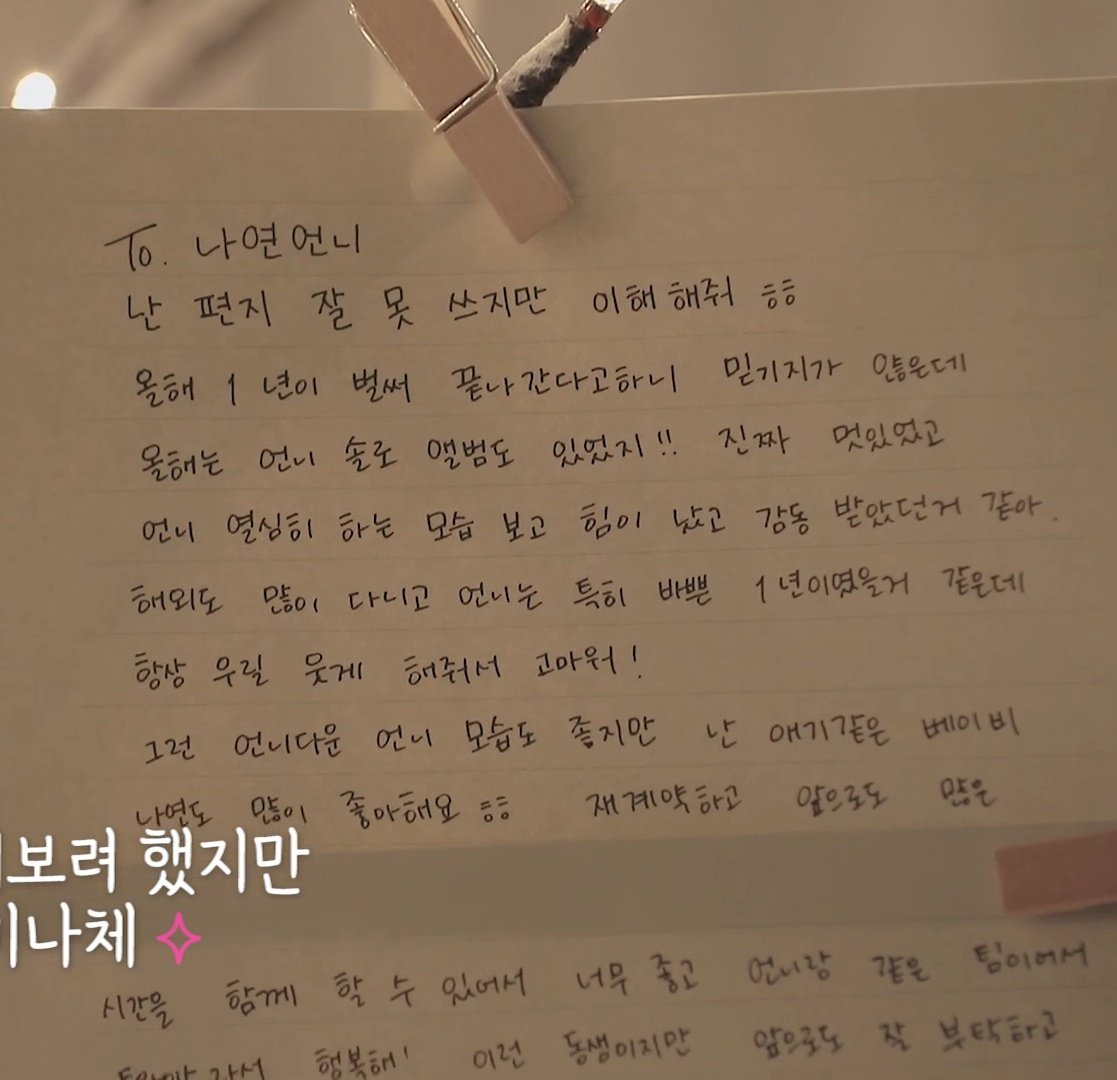 To. 나연언니
난 편지 잘 못 쓰지만 이해해줘 ㅎㅎ
올해 1년이 벌써 끝나간다고하니 믿기지가 않은데
올해는 언니 솔로 앨범도 있었지!! 진짜 멋있었고
언니 열심히 하는 모습 보고 힘이 났고 감동 받았던거 같아.
해외도 많이 다니고 언니는 특히 바쁜 1년이였을거 같은데
항상 우릴 웃게 해줘서 고마워!
그런 언니다운 언니 모습도 좋지만 난 애기같은 베이비
나연도 많이 좋아해요 ㅎㅎ 재계약하고 앞으로도 많은
보려 했지만
나체
시간을 함께 할 수 있어서 너무 좋고 언니랑 같은 팀이어서
행복해! 이런 동생이지만 앞으로도 잘 부탁하고